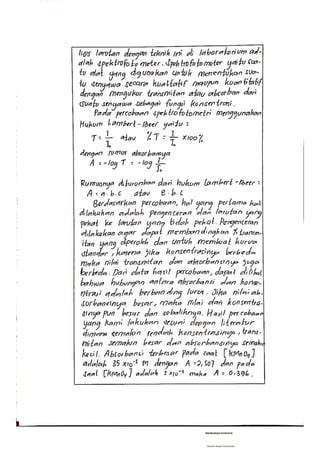 lisis larutan dengan teknik ini di laboratorium ad-
alah spektrofotometer. Spektrofotometer yaitu sua-
tu alat yang digunakan untuk menentukan sua-
tu senyawa secara kualitatif maupun kuantitatif
dengan mengukur transmitan atau absorban dari
suatu senyawa sebagai fungsi konsentrasi.
Pada percobaan spektrofotometri menggunakan
Hukum Lambert-Beer yaitu :
T = I/I₀ atau % T = I/I₀ x 100%
dengan rumus absorbansnya
A = -log T = -log I/I₀
Rumusnya diturunkan dari hukum Lambert-Beer :
A = a . b . c atau ε . b . c
Berdasarkan percobaan, hal yang pertama kali
dilakukan adalah pengenceran dari larutan yang
pekat ke larutan yang tidak pekat. Pengenceran
dilakukan agar dapat membandingkan % transm-
itan yang diperoleh dan untuk membuat kurva
standar, karena jika konsentrasinya berbeda
maka nilai transmitan dan absorbansnya juga
berbeda. Dari data hasil percobaan, dapat dilihat
bahwa hubungan antara absorbansi dan konse-
ntrasi adalah berbanding lurus. Jika nilai ab-
sorbansinya besar, maka nilai dari konsentra-
sinya pun besar dan sebaliknya. Hasil percobaan
yang kami lakukan sesuai dengan literatur
dimana semakin rendah konsentrasinya, trans-
mitan semakin besar dan absorbansinya semakin
kecil. Absorbansi terbesar pada saat [KMnO₄]
adalah 35 x10⁻⁵ M dengan A = 2,507 dan pada
saat [KMnO₄] adalah 5 x10⁻⁵ maka A = 0,396.